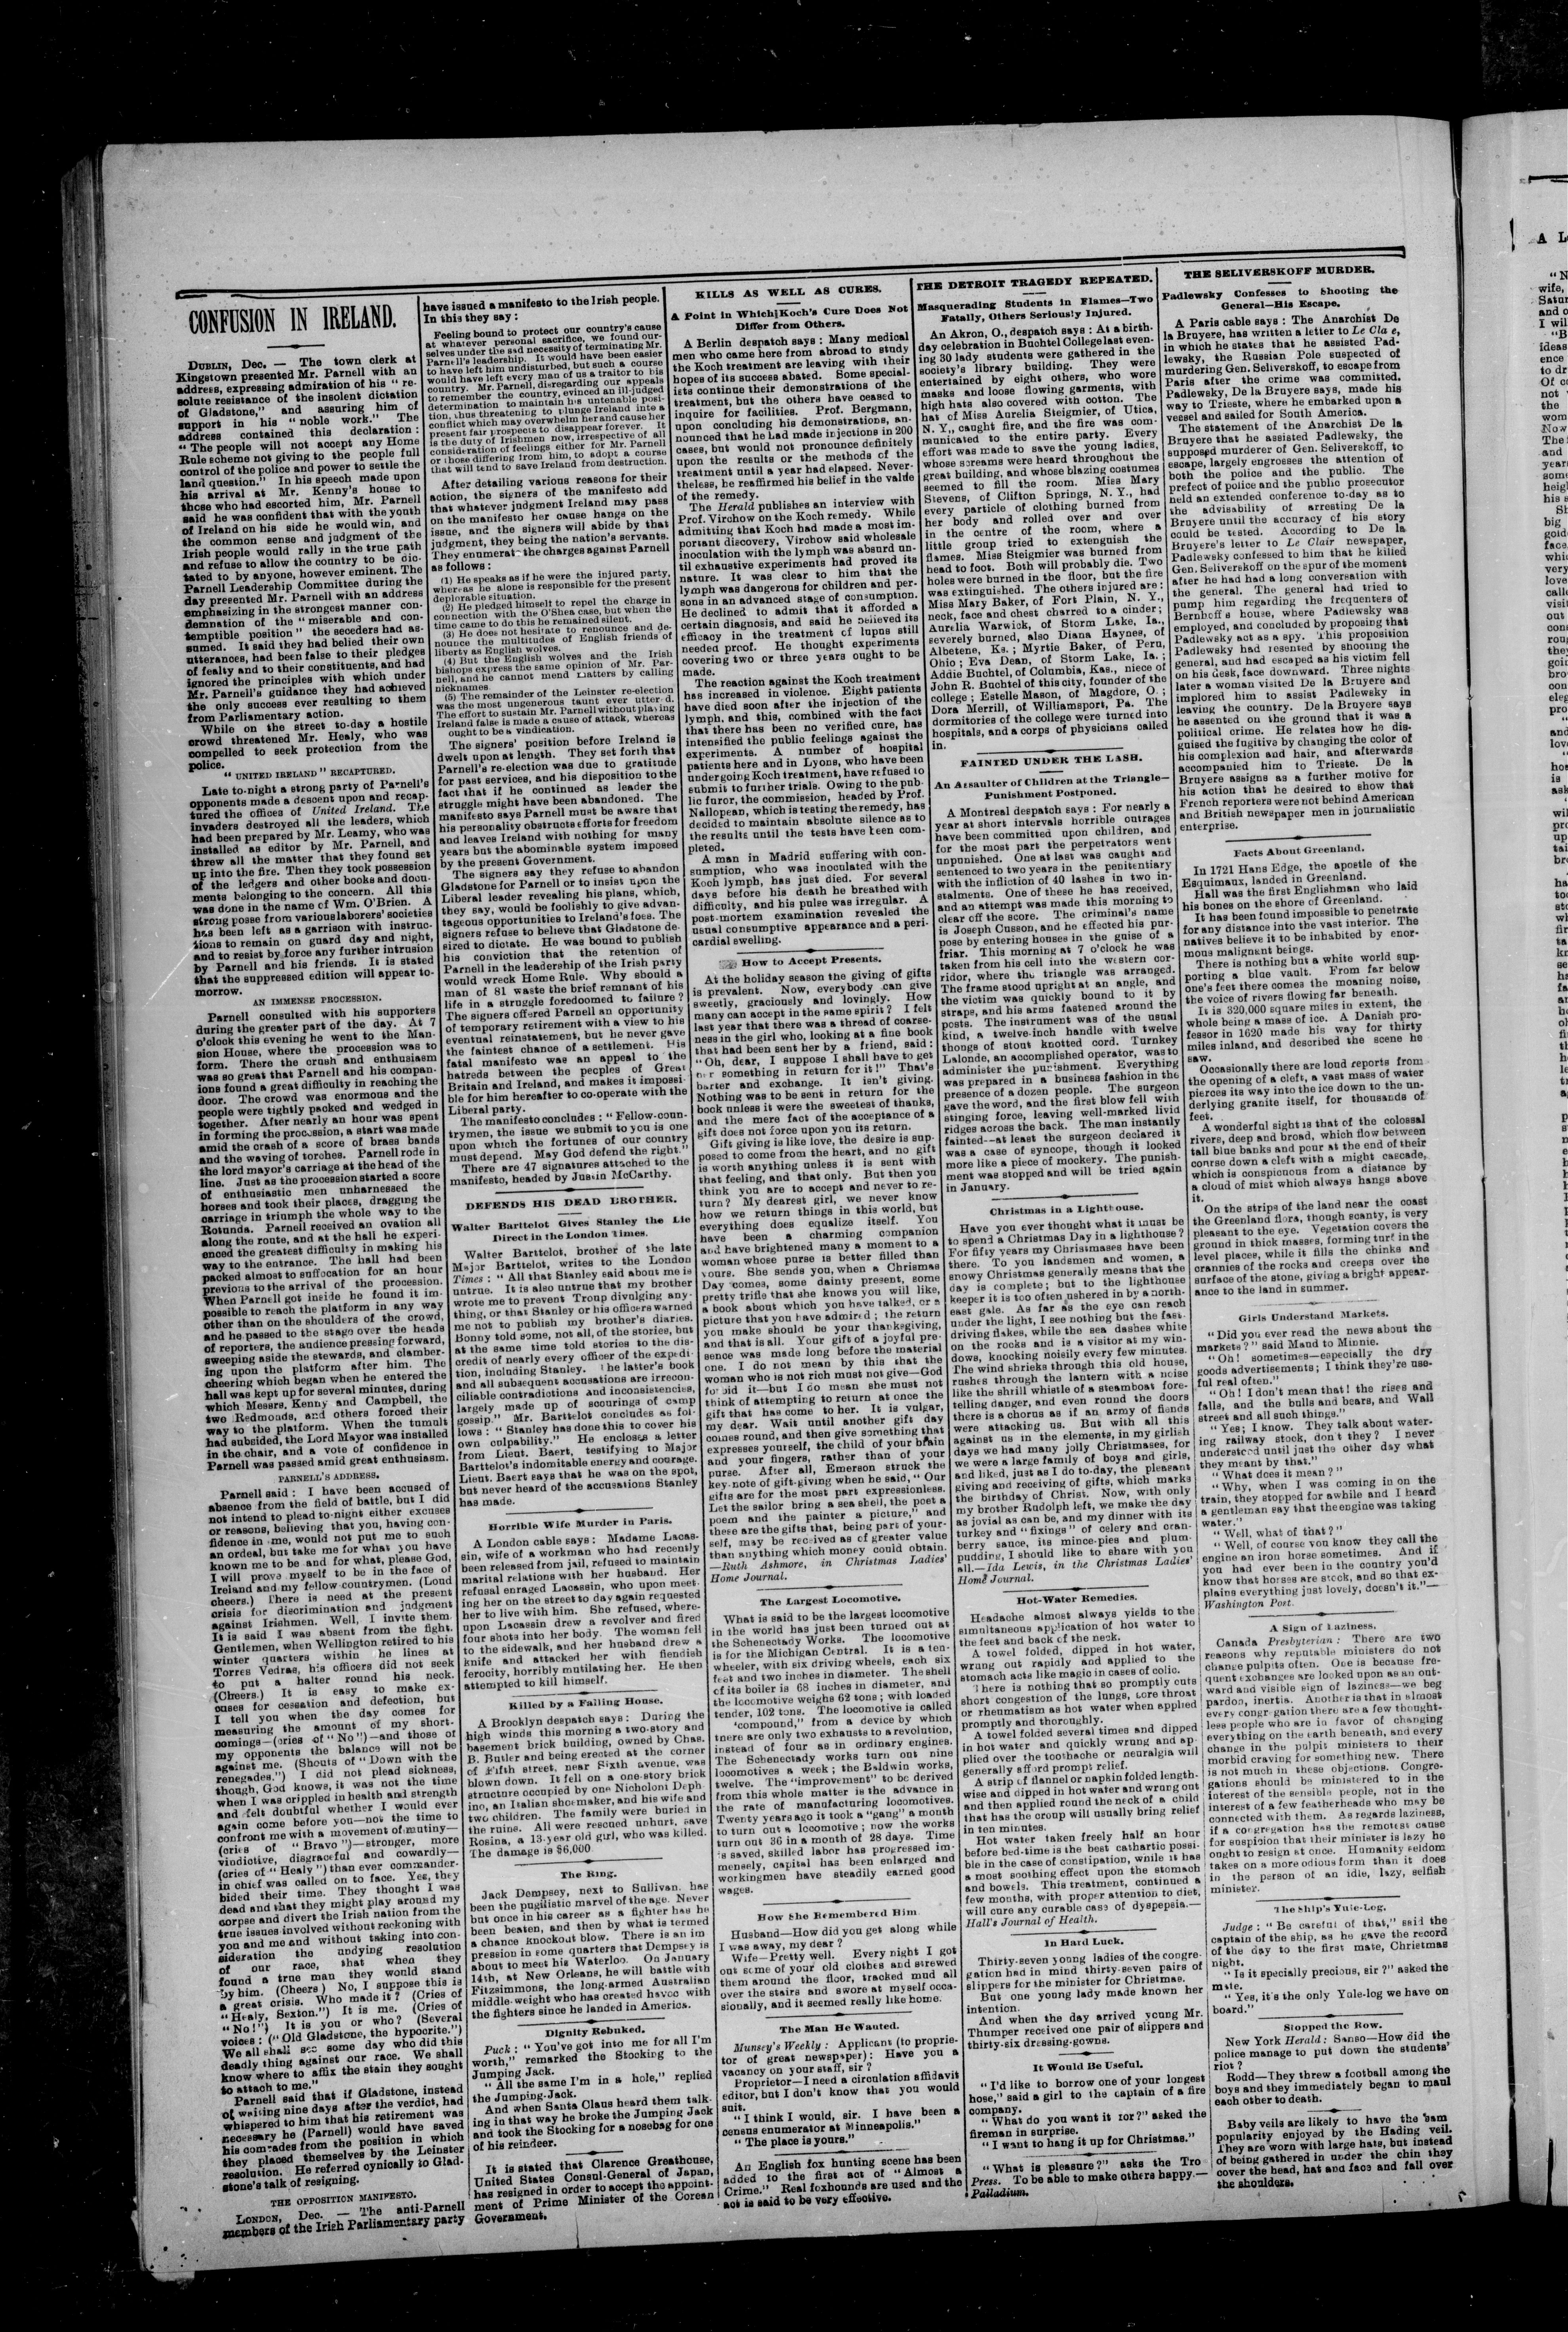 CONFUSION IN IRELAND.
DUBLIN, Dec. The town clerk at
Kingstown presented Mr. Parnell with an
address, expressing admiration of his "re-
solute resistance of the insolent dictation
of Gladstone," and assuring him of
support in his "noble work." The
address contained this declaration:
"The people will not accept any Home
Rule scheme not giving to the people full
control of the police and power to settle the
land question." In his speech made upon
his arrival at Mr. Kenny's house to
those who had escorted him, Mr. Parnell
said he was confident that with the youth
of Ireland on his side he would win, and
the common sense and judgment of the
Irish people would rally in the true path
and refuse to allow the country to be dic-
tated to by anyone, however eminent. The
Parnell Leadership Committee during the
day presented Mr. Parnell with an address
emphasizing in the strongest manner con-
demnation of the "miserable and con-
temptible position" the seceders had as-
sumed. It said they had belied their own
utterances, had been false to their pledges
of fealty and to their constituents, and had
ignored the principles with which under
Mr. Parnell's guidance they had achieved
the only success ever resulting to them
from Parliamentary action.
While on the street to-day a hostile
crowd threatened Mr. Healy, who was
compelled to seek protection from the
police.
"UNITED IRELAND" RECAPTURED.
Late to-night a strong party of Parnell's
opponents made a descent upon and recap-
tured the offices of United Ireland. The
invaders destroyed all the leaders, which
had been prepared by Mr. Leamy, who was
installed as editor by Mr. Parnell, and
threw all the matter that they found set
up into the fire. Then they took possession
of the ledgers and other books and docu-
ments belonging to the concern. All this
was done in the name of Wm. O'Brien. A
strong posse from various laborers' societies
has been left as a garrison with instruc-
tions to remain on guard day and night,
and to resist by force any further intrusion
by Parnell and his friends. It is stated
that the suppressed edition will appear to-
morrow.
AN IMMENSE PROCESSION.
Parnell consulted with his supporters
during the greater part of the day. At 7
o'clock this evening he went to the Man-
sion House, where the procession was to
form. There the crush and enthusiasm
was so great that Parnell and his compan-
ions found a great difficulty in reaching the
door. The crowd was enormous and the
people were tightly packed and wedged in
together. After nearly an hour was spent
in forming the procession, a start was made
amid the crash of a score of brass bands
and the waving of torches. Parnell rode in
the lord mayor's carriage at the head of the
line. Just as the procession started a score
of enthusiastic men unharnessed the
horses and took their places, dragging the
carriage in triumph the whole way to the
Rotunda. Parnell received an ovation all
along the route, and at the hall he experi-
enced the greatest difficulty in making his
way to the entrance. The hall had been
packed almost to suffocation for an hour
previous to the arrival of the procession.
When Parnell got inside he found it im-
possible to reach the platform in any way
other than on the shoulders of the crowd,
and he passed to the stage over the heads
of reporters, the audience pressing forward,
sweeping aside the stewards, and clamber-
ing upon the platform after him. The
cheering which began when he entered the
hall was kept up for several minutes, during
which Messrs. Kenny and Campbell, the
two Redmonds, and others forced their
way to the platform. When the tumult
had subsided, the Lord Mayor was installed
in the chair, and a vote of confidence in
Parnell was passed amid great enthusiasm.
PARNELL'S ADDRESS.
Parnell said: I have been accused of
absence from the field of battle, but I did
not intend to plead to-night either excuses
or reasons, believing that you, having con-
fidence in me, would not put me to such
an ordeal, but take me for what you have
known me to be and for what, please God,
I will prove myself to be in the face of
Ireland and my fellow-countrymen. (Loud
cheers.) There is need at the present
crisis for discrimination and judgment
against Irishmen. Well, I invite them.
It is said I was absent from the fight.
Gentlemen, when Wellington retired to his
winter quarters within he lines at
Torres Vedras, his officers did not seek
to put a halter round his neck.
(Cheers.) It is easy to make ex-
cuses for cessation and defection, but
I tell you when the day comes for
measuring the amount of my short-
comings—(cries of "No")—and those of
my opponents the balance will not be
against me. (Shouts of "Down with the
renegades.") I did not plead sickness,
though, God knows, it was not the time
when I was crippled in health and strength
and felt doubtful whether I would ever
again come before you—not the time to
confront me with a movement of mutiny—
(cries of "Bravo")—stronger, more
vindictive, disgraceful and cowardly—
(cries of "Healy") than ever commander-
in chief was called on to face. Yes, they
bided their time. They thought I was
dead and that they might play around my
corpse and divert the Irish nation from the
true issues involved without reckoning with
you and me and without taking into con-
sideration the undying resolution
of our race, that when they
found a true man they would stand
by him. (Cheers) No, I suppose this is
a great crisis. Who made it? (Cries of
"Healy, Sexton.") It is me. (Cries of
"No!") It is you or who? (Several
voices: ("Old Gladstone, the hypocrite.")
We all shall see some day who did this
deadly thing against our race. We shall
know where to affix the stain they sought
to attach to me."
Parnell said that if Gladstone, instead
of waiting nine days after the verdict, had
whispered to him that his retirement was
necessary he (Parnell) would have saved
his comrades from the position in which
they placed themselves by the Leinster
resolution. He referred cynically to Glad-
stone's talk of resigning.
THE OPPOSITION MANIFESTO.
LONDON, Dec. — The anti-Parnell
members of the Irish Parliamentary party
have issued a manifesto to the Irish people.
In this they say:
Feeling bound to protect our country's cause
at whatever personal sacrifice, we found our-
selves under the sad necessity of terminating Mr.
Parnell's leadership. It would have been easier
to have left him undisturbed, but such a course
would have left every man of us a traitor to his
country. Mr. Parnell, disregarding our appeals
to remember the country, evinced an ill-judged
determination to maintain his untenable posi-
tion, thus threatening to plunge Ireland into a
conflict which may overwhelm her and cause her
present fair prospects to disappear forever. It
is the duty of Irishmen now, irrespective of all
consideration of feelings either for Mr. Parnell
or those differing from him, to adopt a course
that will tend to save Ireland from destruction.
After detailing various reasons for their
action, the signers of the manifesto add
that whatever judgment Ireland may pass
on the manifesto her cause hangs on the
issue, and the signers will abide by that
judgment, they being the nation's servants.
They enumerate the charges against Parnell
as follows:
(1) He speaks as if he were the injured party,
whereas he alone is responsible for the present
deplorable situation.
(2) He pledged himself to repel the charge in
connection with the O'Shea case, but when the
time came to do this he remained silent.
(3) He does not hesitate to renounce and de-
nounce the multitudes of English friends of
liberty as English wolves.
(4) But the English wolves and the Irish
bishops express the same opinion of Mr. Par-
nell, and he cannot mend matters by calling
nicknames.
(5) The remainder of the Leinster re-election
was the most ungenerous taunt ever utter-d.
The effort to sustain Mr. Parnell without placing
Ireland false is made a cause of attack, whereas
ought to be a vindication.
The signers' position before Ireland is
dwelt upon at length. They set forth that
Parnell's re-election was due to gratitude
for past services, and his disposition to the
fact that if he continued as leader the
struggle might have been abandoned. The
manifesto says Parnell must be aware that
his personality obstructs efforts for freedom
and leaves Ireland with nothing for many
years but the abominable system imposed
by the present Government.
The signers say they refuse to abandon
Gladstone for Parnell or to insist upon the
Liberal leader revealing his plans, which,
they say, would be foolishly to give advan-
tageous opportunities to Ireland's foes. The
signers refuse to believe that Gladstone de-
sired to dictate. He was bound to publish
his conviction that the retention of
Parnell in the leadership of the Irish party
would wreck Home Rule. Why should a
man of 81 waste the brief remnant of his
life in a struggle foredoomed to failure?
The signers offered Parnell an opportunity
of temporary retirement with a view to his
eventual reinstatement, but he never gave
the faintest chance of a settlement. His
fatal manifesto was an appeal to the
hatreds between the peoples of Great
Britain and Ireland, and makes it impossi-
ble for him hereafter to co-operate with the
Liberal party.
The manifesto concludes: "Fellow-coun-
trymen, the issue we submit to you is one
upon which the fortunes of our country
must depend. May God defend the right."
There are 47 signatures attached to the
manifesto, headed by Justin McCarthy.
DEFENDS HIS DEAD BROTHER.
Walter Barttelot Gives Stanley the Lie
Direct in the London Times.
Walter Barttelot, brother of the late
Major Barttelot, writes to the London
Times: "All that Stanley said about me is
untrue. It is also untrue that my brother
wrote me to prevent Troup divulging any-
thing, or that Stanley or his officers warned
me not to publish my brother's diaries.
Bonny told some, not all, of the stories, but
at the same time told stories to the dis-
credit of nearly every officer of the expedi-
tion, including Stanley. The latter's book
and all subsequent accusations are irrecon-
cilable contradictions and inconsistencies,
largely made up of scourings of camp
gossip." Mr. Barttelot concludes as fol-
lows: "Stanley has done this to cover his
own culpability." He encloses a letter
from Lieut. Baert, testifying to Major
Barttelot's indomitable energy and courage.
Lieut. Baert says that he was on the spot,
but never heard of the accusations Stanley
has made.
Horrible Wife Murder in Paris.
A London cable says: Madame Lacas-
sin, wife of a workman who had recently
been released from jail, refused to maintain
marital relations with her husband. Her
refusal enraged Lacassin, who upon meet-
ing her on the street to day again requested
her to live with him. She refused, where-
upon Lacassin drew a revolver and fired
four shots into her body. The woman fell
to the sidewalk, and her husband drew a
knife and attacked her with fiendish
ferocity, horribly mutilating her. He then
attempted to kill himself.
Killed by a Falling House.
A Brooklyn despatch says: During the
high winds this morning a two-story and
basement brick building, owned by Chas.
B. Butler and being erected at the corner
of Fifth street, near Sixth avenue, was
blown down. It fell on a one-story brick
structure occupied by one Nicholoni Deph-
ino, an Italian shoemaker, and his wife and
two children. The family were buried in
the ruins. All were rescued unhurt, save
Rosina, a 13-year old girl, who was killed.
The damage is $6,000.
The Ring.
Jack Dempsey, next to Sullivan, has
been the pugilistic marvel of the age. Never
but once in his career as a fighter has he
been beaten, and then by what is termed
a chance knockout blow. There is an im
pression in some quarters that Dempsey is
about to meet his Waterloo. On January
14th, at New Orleans, he will battle with
Fitzsimmons, the long-armed Australian
middle-weight who has created havoc with
the fighters since he landed in America.
Dignity Rebuked.
Puck: "You've got into me for all I'm
worth," remarked the Stocking to the
Jumping Jack.
"All the same I'm in a hole," replied
the Jumping-Jack.
And when Santa Claus heard them talk-
ing in that way he broke the Jumping Jack
and took the Stocking for a nosebag for one
of his reindeer.
It is stated that Clarence Greathouse,
United States Consul-General of Japan,
has resigned in order to accept the appoint-
ment of Prime Minister of the Corean
Government.
KILLS AS WELL AS CURES.
A Point in Which Koch's Cure Does Not
Differ from Others.
A Berlin despatch says: Many medical
men who came here from abroad to study
the Koch treatment are leaving with their
hopes of its success abated. Some special-
ists continue their demonstrations of the
treatment, but the others have ceased to
inquire for facilities. Prof. Bergmann,
upon concluding his demonstrations, an-
nounced that he had made injections in 200
cases, but would not pronounce definitely
upon the results or the methods of the
treatment until a year had elapsed. Never-
theless, he reaffirmed his belief in the valde
of the remedy.
The Herald publishes an interview with
Prof. Virchow on the Koch remedy. While
admitting that Koch had made a most im-
portant discovery, Virchow said wholesale
inoculation with the lymph was absurd un-
til exhaustive experiments had proved its
nature. It was clear to him that the
lymph was dangerous for children and per-
sons in an advanced stage of consumption.
He declined to admit that it afforded a
certain diagnosis, and said he believed its
efficacy in the treatment of lupus still
needed proof. He thought experiments
covering two or three years ought to be
made.
The reaction against the Koch treatment
has increased in violence. Eight patients
have died soon after the injection of the
lymph, and this, combined with the fact
that there has been no verified cure, has
intensified the public feelings against the
experiments. A number of hospital
patients here and in Lyons, who have been
undergoing Koch treatment, have refused to
submit to further trials. Owing to the pub-
lic furor, the commission, headed by Prof.
Nallopean, which is testing the remedy, has
decided to maintain absolute silence as to
the results until the tests have been com-
pleted.
A man in Madrid suffering with con-
sumption, who was inoculated with the
Koch lymph, has just died. For several
days before his death he breathed with
difficulty, and his pulse was irregular. A
post-mortem examination revealed the
usual consumptive appearance and a peri-
cardial swelling.
How to Accept Presents.
At the holiday season the giving of gifts
is prevalent. Now, everybody can give
sweetly, graciously and lovingly. How
many can accept in the same spirit? I felt
last year that there was a thread of coarse-
ness in the girl who, looking at a fine book
that had been sent her by a friend, said:
"Oh, dear, I suppose I shall have to get
her something in return for it!" That's
barter and exchange. It isn't giving.
Nothing was to be sent in return for the
book unless it were the sweetest of thanks,
and the mere fact of the acceptance of a
gift does not force upon you its return.
Gift giving is like love, the desire is sup-
posed to come from the heart, and no gift
is worth anything unless it is sent with
that feeling, and that only. But then you
think you are to accept and never to re-
turn? My dearest girl, we never know
how we return things in this world, but
everything does equalize itself. You
have been a charming companion
and have brightened many a moment to a
woman whose purse is better filled than
yours. She sends you, when a Chrismas
Day comes, some dainty present, some
pretty trifle that she knows you will like,
a book about which you have talked, or a
picture that you have admired; the return
you make should be your thanksgiving,
and that is all. Your gift of a joyful pre-
sence was made long before the material
one. I do not mean by this that the
woman who is not rich must not give—God
forbid it—but I do mean she must not
think of attempting to return at once the
gift that has come to her. It is vulgar,
my dear. Wait until another gift day
comes round, and then give something that
expresses yourself, the child of your brain
and your fingers, rather than of your
purse. After all, Emerson struck the
key-note of gift-giving when he said, "Our
gifts are for the most part expressionless.
Let the sailor bring a sea shell, the poet a
poem and the painter a picture," and
these are the gifts that, being part of your-
self, may be received as of greater value
than anything which money could obtain.
—Ruth Ashmore, in Christmas Ladies'
Home Journal.
The Largest Locomotive.
What is said to be the largest locomotive
in the world has just been turned out at
the Schenectady Works. The locomotive
is for the Michigan Central. It is a ten-
wheeler, with six driving wheels, each six
feet and two inches in diameter. The shell
of its boiler is 68 inches in diameter, and
the locomotive weighs 62 tons; with loaded
tender, 102 tons. The locomotive is called
'compound," from a device by which
there are only two exhausts to a revolution,
instead of four as in ordinary engines.
The Schenectady works turn out nine
locomotives a week; the Baldwin works,
twelve. The "improvement" to be derived
from this whole matter is the advance in
the rate of manufacturing locomotives.
Twenty years ago it took a "gang" a month
to turn out a locomotive; now the works
turn out 36 in a month of 28 days. Time
is saved, skilled labor has progressed im-
mensely, capital has been enlarged and
workingmen have steadily earned good
wages.
How She Remembered Him
Husband—How did you get along while
I was away, my dear?
Wife—Pretty well. Every night I got
out some of your old clothes and strewed
them around the floor, tracked mud all
over the stairs and swore at myself occa-
sionally, and it seemed really like home.
The Man He Wanted.
Munsey's Weekly: Applicant (to proprie-
tor of great newspaper): Have you a
vacancy on your staff, sir?
Proprietor—I need a circulation affidavit
editor, but I don't know that you would
suit.
"I think I would, sir. I have been a
census enumerator at Minneapolis."
"The place is yours."
An English fox hunting scene has been
added to the first act of "Almost a
Crime." Real foxhounds are used and the
act is said to be very effective.
THE DETROIT TRAGEDY REPEATED.
Masquerading Students in Flames—Two
Fatally, Others Seriously Injured.
An Akron, O., despatch says: At a birth-
day celebration in Buchtel College last even-
ing 30 lady students were gathered in the
society's library building. They were
entertained by eight others, who wore
masks and loose flowing garments, with
high hats also covered with cotton. The
hat of Miss Aurelia Steigmier, of Utica,
N. Y., caught fire, and the fire was com-
municated to the entire party. Every
effort was made to save the young ladies,
whose screams were heard throughout the
great building, and whose blazing costumes
seemed to fill the room. Miss Mary
Stevens, of Clifton Springs, N. Y., had
every particle of clothing burned from
her body and rolled over and over
in the centre of the room, where a
little group tried to extenguish the
flames. Miss Steigmier was burned from
head to foot. Both will probably die. Two
holes were burned in the floor, but the fire
was extinguished. The others injured are:
Miss Mary Baker, of Fort Plain, N. Y.,
neck, face and chest charred to a cinder;
Aurelia Warwick, of Storm Lake, Ia.,
severely burned, also Diana Haynes, of
Albetene, Ks.; Myrtie Baker, of Peru,
Ohio; Eva Dean, of Storm Lake, Ia.;
Addie Buchtel, of Columbia, Kas., niece of
John R. Buchtel of this city, founder of the
college; Estelle Mason, of Magdore, O.;
Dora Merrill, of Williamsport, Pa. The
dormitories of the college were turned into
hospitals, and a corps of physicians called
in.
FAINTED UNDER THE LASH.
An Assaulter of Children at the Triangle—
Punishment Postponed.
A Montreal despatch says: For nearly a
year at short intervals horrible outrages
have been committed upon children, and
for the most part the perpetrators went
unpunished. One at last was caught and
sentenced to two years in the penitentiary
with the infliction of 40 lashes in two in-
stalments. One of these he has received,
and an attempt was made this morning to
clear off the score. The criminal's name
is Joseph Cusson, and he effected his pur-
pose by entering houses in the guise of a
friar. This morning at 7 o'clock he was
taken from his cell into the western cor-
ridor, where the triangle was arranged.
The frame stood upright at an angle, and
the victim was quickly bound to it by
straps, and his arms fastened around the
posts. The instrument was of the usual
kind, a twelve-inch handle with twelve
thongs of stout knotted cord. Turnkey
Lalonde, an accomplished operator, was to
administer the punishment. Everything
was prepared in a business fashion in the
presence of a dozen people. The surgeon
gave the word, and the first blow fell with
stinging force, leaving well-marked livid
ridges across the back. The man instantly
fainted--at least the surgeon declared it
was a case of syncope, though it looked
more like a piece of mockery. The punish-
ment was stopped and will be tried again
in January.
Christmas in a Lighthouse.
Have you ever thought what it must be
to spend a Christmas Day in a lighthouse?
For fifty years my Christmases have been
there. To you landsmen and women, a
snowy Christmas generally means that the
day is complete; but to the lighthouse
keeper it is too often ushered in by a north-
east gale. As far as the eye can reach
under the light, I see nothing but the fast-
driving flakes, while the sea dashes while
on the rocks and is a visitor at my win-
dows, knocking noisily every few minutes.
The wind shrieks through this old house,
rushes through the lantern with a noise
like the shrill whistle of a steamboat fore-
telling danger, and even round the doors
there is a chorus as if an army of fiends
were attacking us. But with all this
against us in the elements, in my girlish
days we had many jolly Christmases, for
we were a large family of boys and girls,
and liked, just as I do to-day, the pleasant
giving and receiving of gifts, which marks
the birthday of Christ. Now, with only
my brother Rudolph left, we make the day
as jovial as can be, and my dinner with its
turkey and "fixings" of celery and cran-
berry sauce, its mince-pies and plum-
pudding, I should like to share with you
all.—Ida Lewis, in the Christmas Ladies'
Home Journal.
Hot-Water Remedies.
Headache almost always yields to the
simultaneous application of hot water to
the feet and back of the neck.
A towel folded, dipped in hot water,
wrung out rapidly and applied to the
stomach acts like magic in cases of colic.
There is nothing that so promptly cuts
short congestion of the lungs, sore throat
or rheumatism as hot water when applied
promptly and thoroughly.
A towel folded several times and dipped
in hot water and quickly wrung and ap-
plied over the toothache or neuralgia will
generally afford prompt relief.
A strip of flannel or napkin folded length-
wise and dipped in hot water and wrung out
and then applied round the neck of a child
that has the croup will usually bring relief
in ten minutes.
Hot water taken freely half an hour
before bed-time is the best cathartic possi-
ble in the case of constipation, while it has
a most soothing effect upon the stomach
and bowels. This treatment, continued a
few months, with proper attention to diet,
will cure any curable case of dyspepsia.—
Hall's Journal of Health.
In Hard Luck.
Thirty-seven young ladies of the congre-
gation had in mind thirty-seven pairs of
slippers for the minister for Christmas.
But one young lady made known her
intention.
And when the day arrived young Mr.
Thumper received one pair of slippers and
thirty-six dressing-gowns.
It Would Be Useful.
"I'd like to borrow one of your longest
hose," said a girl to the captain of a fire
company.
"What do you want it for?" asked the
fireman in surprise.
"I want to hang it up for Christmas."
"What is pleasure?" asks the Tro
Press. To be able to make others happy.—
Palladium.
THE SELIVERSKOFF MURDER.
Padlewsky Confesses to Shooting the
General—His Escape.
A Paris cable says: The Anarchist De
la Bruyere, has written a letter to Le Cla e,
in which he states that he assisted Pad-
lewsky, the Russian Pole suspected of
murdering Gen. Seliverskoff, to escape from
Paris after the crime was committed.
Padlewsky, De la Bruyere says, made his
way to Trieste, where he embarked upon a
vessel and sailed for South America.
The statement of the Anarchist De la
Bruyere that he assisted Padlewsky, the
supposed murderer of Gen. Seliverskoff, to
escape, largely engrosses the attention of
both the police and the public. The
prefect of police and the public prosecutor
held an extended conference to-day as to
the advisability of arresting De la
Bruyere until the accuracy of his story
could be tested. According to De la
Bruyere's letter to Le Clair newspaper,
Padlewsky confessed to him that he killed
Gen. Seliverskoff on the spur of the moment
after he had had a long conversation with
the general. The general had tried to
pump him regarding the frequenters of
Bernhoff s house, where Padlewsky was
employed, and concluded by proposing that
Padlewsky act as a spy. This proposition
Padlewsky had resented by shooting the
general, and had escaped as his victim fell
on his desk, face downward. Three nights
later a woman visited De la Bruyere and
implored him to assist Padlewsky in
leaving the country. De la Bruyere says
he assented on the ground that it was a
political crime. He relates how he dis-
guised the fugitive by changing the color of
his complexion and hair, and afterwards
accompanied him to Trieste. De la
Bruyere assigns as a further motive for
his action that he desired to show that
French reporters were not behind American
and British newspaper men in journalistic
enterprise.
Facts About Greenland.
In 1721 Hans Edge, the apostle of the
Esquimaux, landed in Greenland.
Hall was the first Englishman who laid
his bones on the shore of Greenland.
It has been found impossible to penetrate
for any distance into the vast interior. The
natives believe it to be inhabited by enor-
mous malignant beings.
There is nothing but a white world sup-
porting a blue vault. From far below
one's feet there comes the moaning noise,
the voice of rivers flowing far beneath.
It is 320,000 square miles in extent, the
whole being a mass of ice. A Danish pro-
fessor in 1620 made his way for thirty
miles inland, and described the scene he
saw.
Occasionally there are loud reports from
the opening of a cleft, a vast mass of water
pierces its way into the ice down to the un-
derlying granite itself, for thousands of
feet.
A wonderful sight is that of the colossal
rivers, deep and broad, which flow between
tall blue banks and pour at the end of their
course down a cleft with a might cascade,
which is conspicuous from a distance by
a cloud of mist which always hangs above
it.
On the strips of the land near the coast
the Greenland flora, though scanty, is very
pleasant to the eye. Vegetation covers the
ground in thick masses, forming turf in the
level places, while it fills the chinks and
crannies of the rocks and creeps over the
surface of the stone, giving a bright appear-
ance to the land in summer.
Girls Understand Markets.
"Did you ever read the news about the
markets?" said Maud to Minnie.
"Oh! sometimes—especially the dry
goods advertisements; I think they're use-
ful real often."
"Oh! I don't mean that! the rises and
falls, and the bulls and bears, and Wall
street and all such things."
"Yes; I know. They talk about water-
ing railway stock, don't they? I never
understood until just the other day what
they meant by that."
"What does it mean?"
"Why, when I was coming in on the
train, they stopped for awhile and I heard
a gentleman say that the engine was taking
water."
"Well, what of that?"
"Well, of course you know they call the
engine an iron horse sometimes. And if
you had ever been in the country you'd
know that horses are stock, and so that ex-
plains everything just lovely, doesn't it."—
Washington Post.
A Sign of Laziness.
Canada Presbyterian: There are two
reasons why reputable ministers do not
change pulpits often. One is because fre-
quent exchanges are looked upon as an out-
ward and visible sign of laziness—we beg
pardon, inertia. Another is that in almost
every congregation there are a few thought-
less people who are in favor of changing
everything on the earth beneath, and every
change in the pulpit ministers to their
morbid craving for something new. There
is not much in these objections. Congre-
gations should be ministered to in the
interest of the sensible people, not in the
interest of a few featherheads who may be
connected with them. As regards laziness,
if a congregation has the remotest cause
for suspicion that their minister is lazy he
ought to resign at once. Humanity seldom
takes on a more odious form than it does
in the person of an idle, lazy, selfish
minister.
The Ship's Yule-Log.
Judge: "Be careful of that," said the
captain of the ship, as he gave the record
of the day to the first mate, Christmas
night.
"Is it specially precious, sir?" asked the
mate.
"Yes, it's the only Yule-log we have on
board."
Stopped the Row.
New York Herald: Sanso—How did the
police manage to put down the students'
riot?
Rodd—They threw a football among the
boys and they immediately began to maul
each other to death.
Baby veils are likely to have the sam
popularity enjoyed by the Hading veil.
They are worn with large hats, but instead
of being gathered in under the chin they
cover the head, hat and face and fall over
the shoulders.